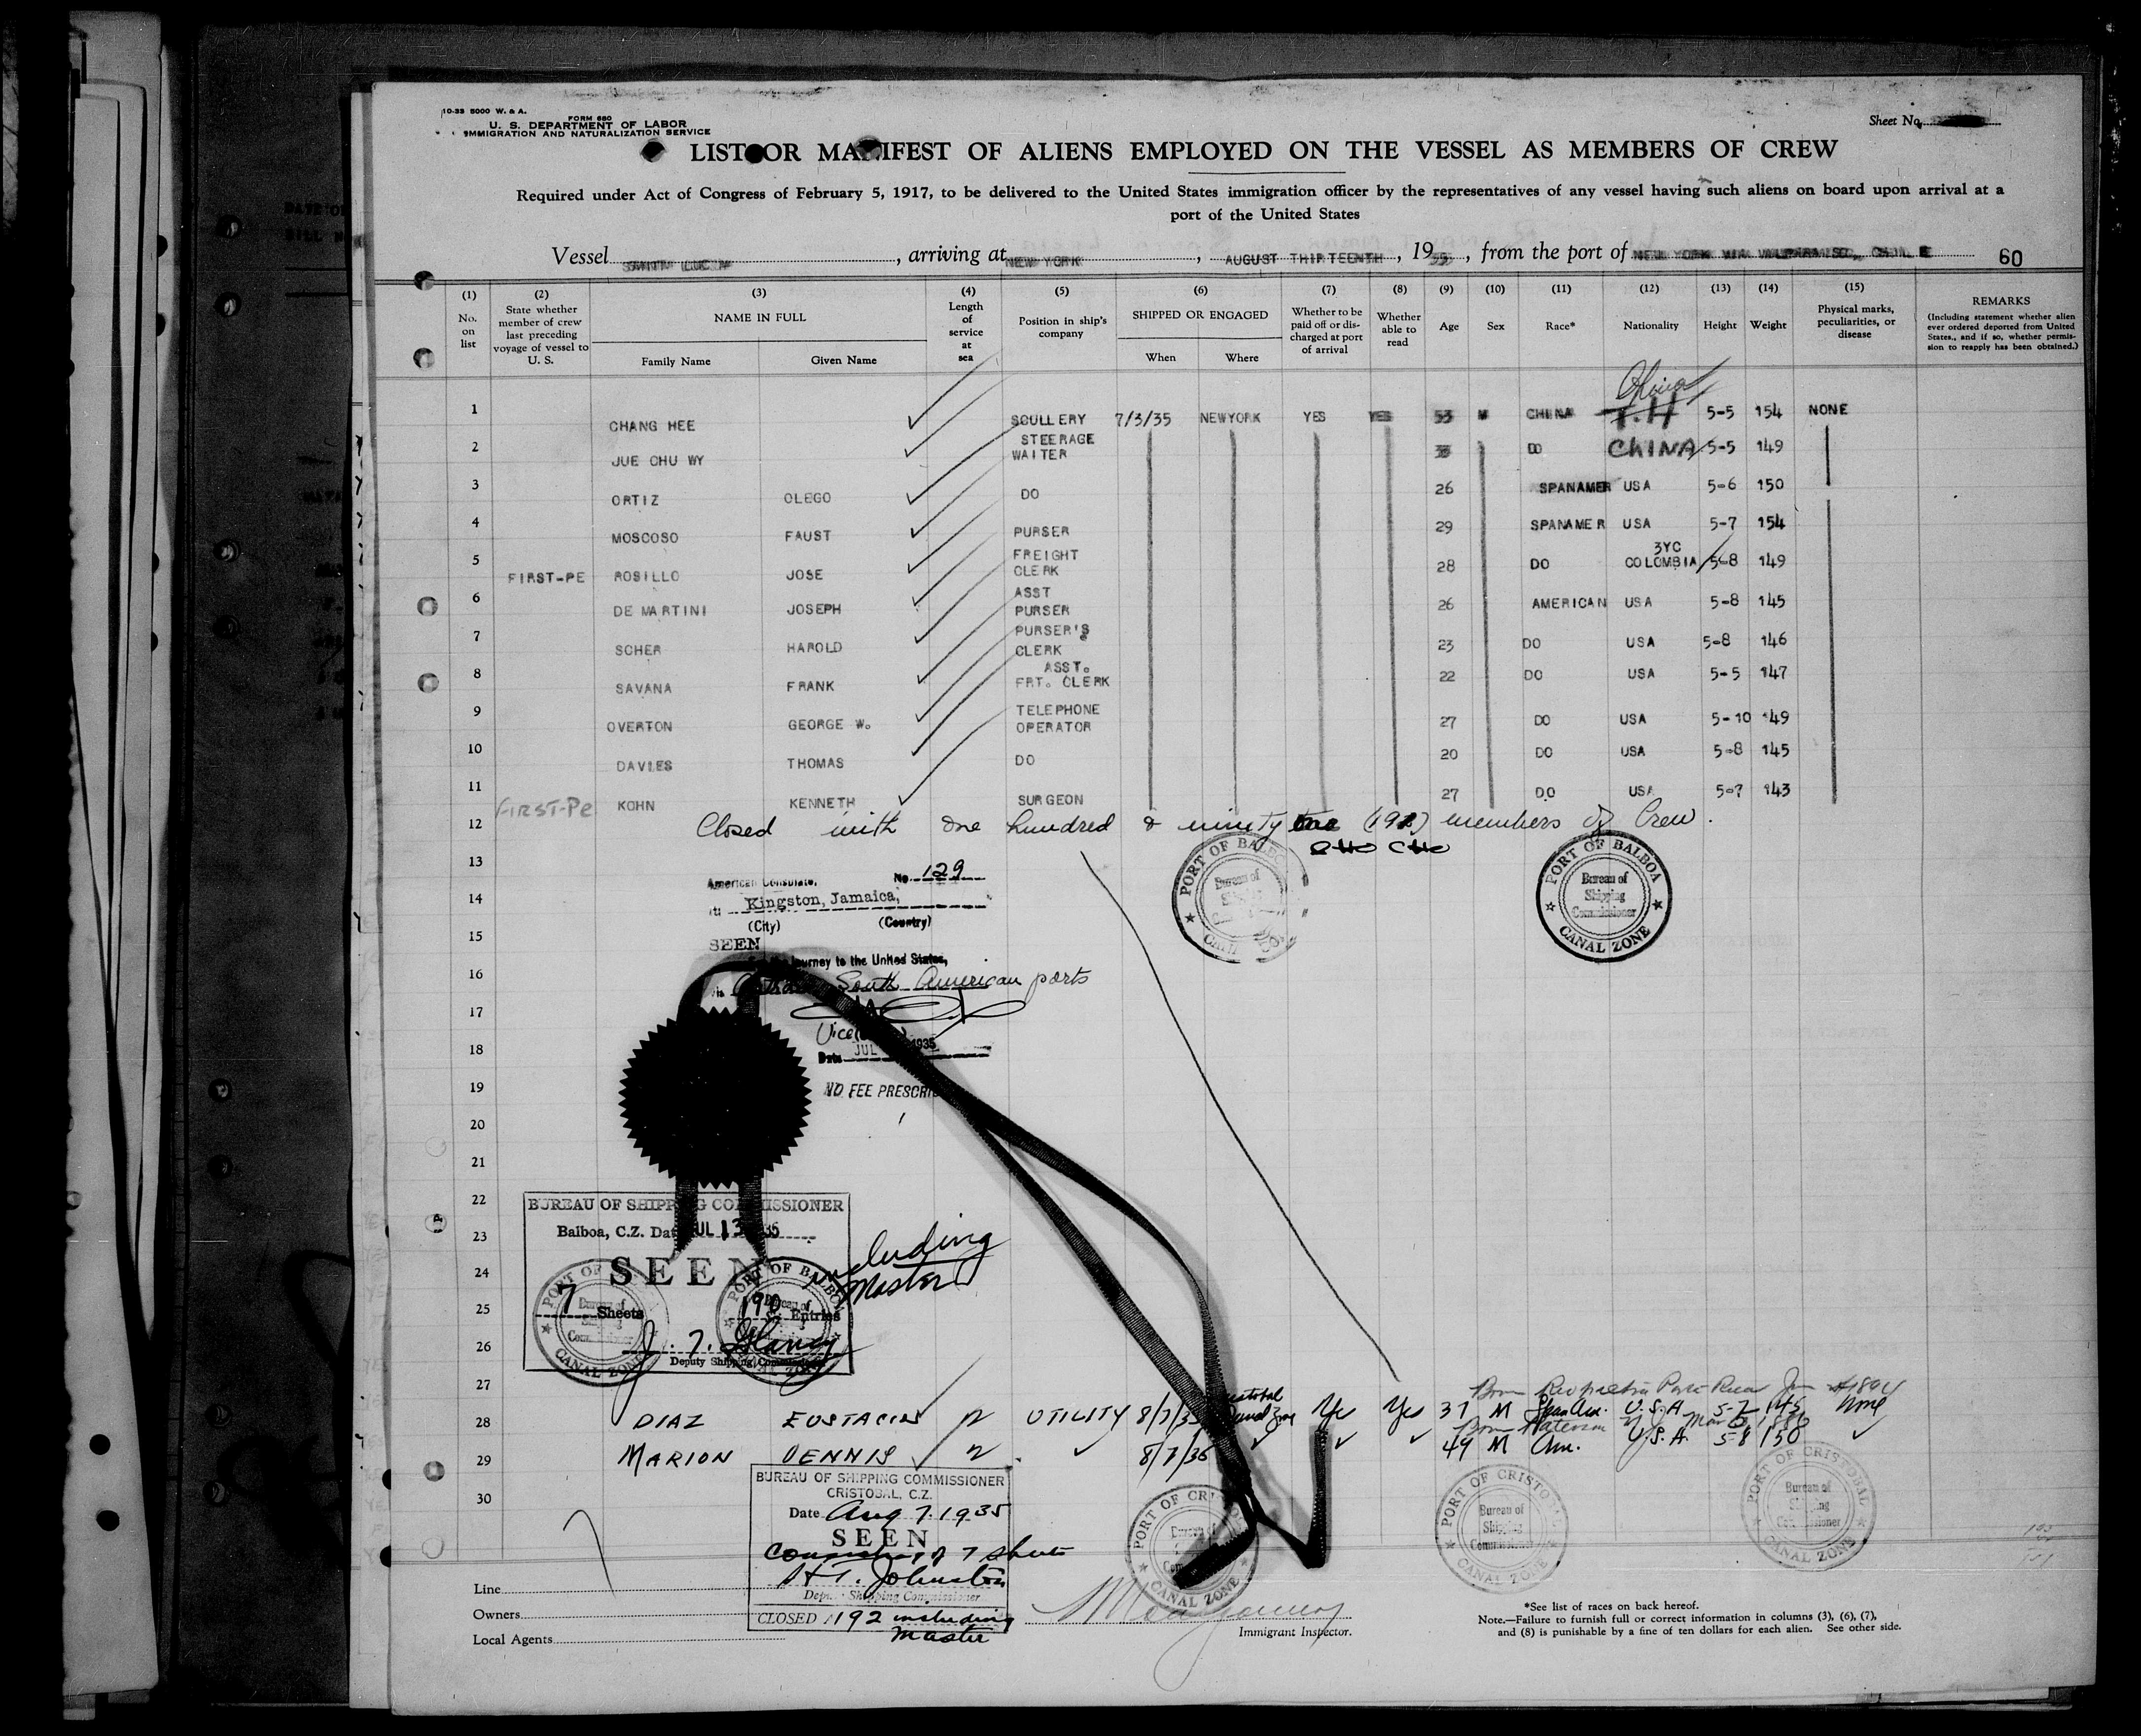 10-33 5000 W. & A.
FORM 680
U. S. DEPARTMENT OF LABOR
IMMIGRATION AND NATURALIZATION SERVICE
Sheet No.
LIST OR MANIFEST OF ALIENS EMPLOYED ON THE VESSEL AS MEMBERS OF CREW
Required under Act of Congress of February 5, 1917, to be delivered to the United States immigration officer by the representatives of any vessel having such aliens on board upon arrival at a
port of the United States
Vessel SANTA LUCIA, arriving at NEW YORK, AUGUST THIRTEENTH, 1935, from the port of NEW YORK VIA VALPARAISO, CHILE 60
(1) No. on list
(2) State whether member of crew last preceding voyage of vessel to U. S.
(3) NAME IN FULL Family Name Given Name
(4) Length of service at sea
(5) Position in ship's company
(6) SHIPPED OR ENGAGED When Where
(7) Whether to be paid off or discharged at port of arrival
(8) Whether able to read
(9) Age
(10) Sex
(11) Race*
(12) Nationality
(13) Height
(14) Weight
(15) Physical marks, peculiarities, or disease
REMARKS (Including statement whether alien ever ordered deported from United States, and if so, whether permission to reapply has been obtained.)
China
1 CHANG HEE SCULLERY 7/3/35 NEWYORK YES YES 53 M CHINA T.H 5-5 154 NONE
2 JUE CHU WY STEERAGE WAITER DO CHINA 5-5 149
3 ORTIZ OLEGO DO 26 SPANAMER USA 5-6 150
4 MOSCOSO FAUST PURSER 29 SPANAMER USA 5-7 154
5 FIRST-PE ROSILLO JOSE FREIGHT CLERK 28 DO 3YC COLOMBIA 5-8 149
6 DE MARTINI JOSEPH ASST PURSER 26 AMERICAN USA 5-8 145
7 SCHER HAROLD PURSER'S CLERK 23 DO USA 5-8 146
8 SAVANA FRANK ASST. FRT. CLERK 22 DO USA 5-5 147
9 OVERTON GEORGE W. TELEPHONE OPERATOR 27 DO USA 5-10 149
10 DAVIES THOMAS DO 20 DO USA 5-8 145
11 FIRST-PE KOHN KENNETH SURGEON 27 DO USA 5-7 143
12 Closed with one hundred & ninety (192) members of Crew.
13
American Consulate, No. 129
14 Kingston, Jamaica,
(City) (Country)
15 SEEN
journey to the United States,
16 South American ports
17
Vice
18 Date JUL 1935
19 NO FEE PRESCRIBED
20
21
22 BUREAU OF SHIPPING COMMISSIONER
23 Balboa, C.Z. Date JUL 13 35
including
24 SEEN Master
25 7 Sheets 190 Entries
26
Deputy Shipping Commissioner
PORT OF BALBOA
Bureau of Shipping Commissioner
CANAL ZONE
PORT OF BALBOA
Bureau of Shipping Commissioner
CANAL ZONE
PORT OF BALBOA
Bureau of Shipping Commissioner
CANAL ZONE
PORT OF BALBOA
Bureau of Shipping Commissioner
CANAL ZONE
27
28 DIAZ EUSTACIO UTILITY 8/7/35 Cristobal Canal Zone Yes Yes 37 M Span Am. U.S.A 5-7 145 None
29 MARION DENNIS 8/7/35 49 M Am. U.S.A. 5-8 150
30
BUREAU OF SHIPPING COMMISSIONER
CRISTOBAL, C.Z.
Date Aug 7. 1935
SEEN
Consisting of 7 sheets
H.T. Johnston
Deputy Shipping Commissioner
CLOSED 192 including
Master
PORT OF CRISTOBAL
Bureau of Shipping Commissioner
CANAL ZONE
PORT OF CRISTOBAL
Bureau of Shipping Commissioner
CANAL ZONE
PORT OF CRISTOBAL
Bureau of Shipping Commissioner
CANAL ZONE
Line
Owners
Local Agents
Immigrant Inspector.
*See list of races on back hereof.
Note.—Failure to furnish full or correct information in columns (3), (6), (7),
and (8) is punishable by a fine of ten dollars for each alien. See other side.